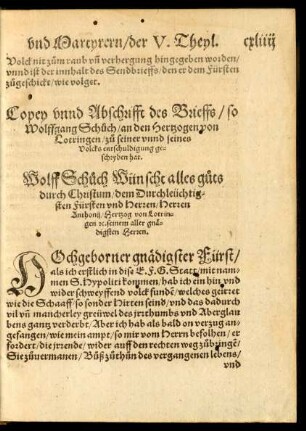 vnd Martyrern/der V. Theyl. cxliiij
Volck nit zům raub vñ verhergung hingegeben worden/
vnnd ist der innhalt des Sendbrieffs/den er dem Fürsten
zůgeschickt/wie volget.
Copey vnnd Abschrifft des Brieffs/so
Wolffgang Schůch/an den Hertzogen von
Lottringen/zů seiner vnnd seines
Volcks entschuldigung ge-
schryben hat.
Wolff Schůch Wünscht alles gůts
durch Christum/dem Durchleüchtig-
sten Fürsten vnd Herren/Herren
Anthonij/Hertzog von Lottrin-
gen ꝛc. seinem aller gnä-
digsten Herren.
HOchgeborner gnädigster Fürst/
als ich erstlich in disẽ E. F. G. Statt/mit nam-
men S. Hypolit kommen/hab ich ein hin vnd
wider schweyffend volck fundẽ/welches geirret
wie die Schaaff so sonder Hirten seind/vnd das dadurch
vil vñ mancherley greüwel des jrrthumbs vnd Aberglau
bens gantz verderbt/Aber ich hab als bald on verzog an-
gefangen/wie mein ampt/so mir vom Herren befolhen/er
fordert/die jrrende/wider auff den rechten weg zůbringẽ/
Sie zůuermanen/Bůß zůthůn des vergangenen lebens/
vnd